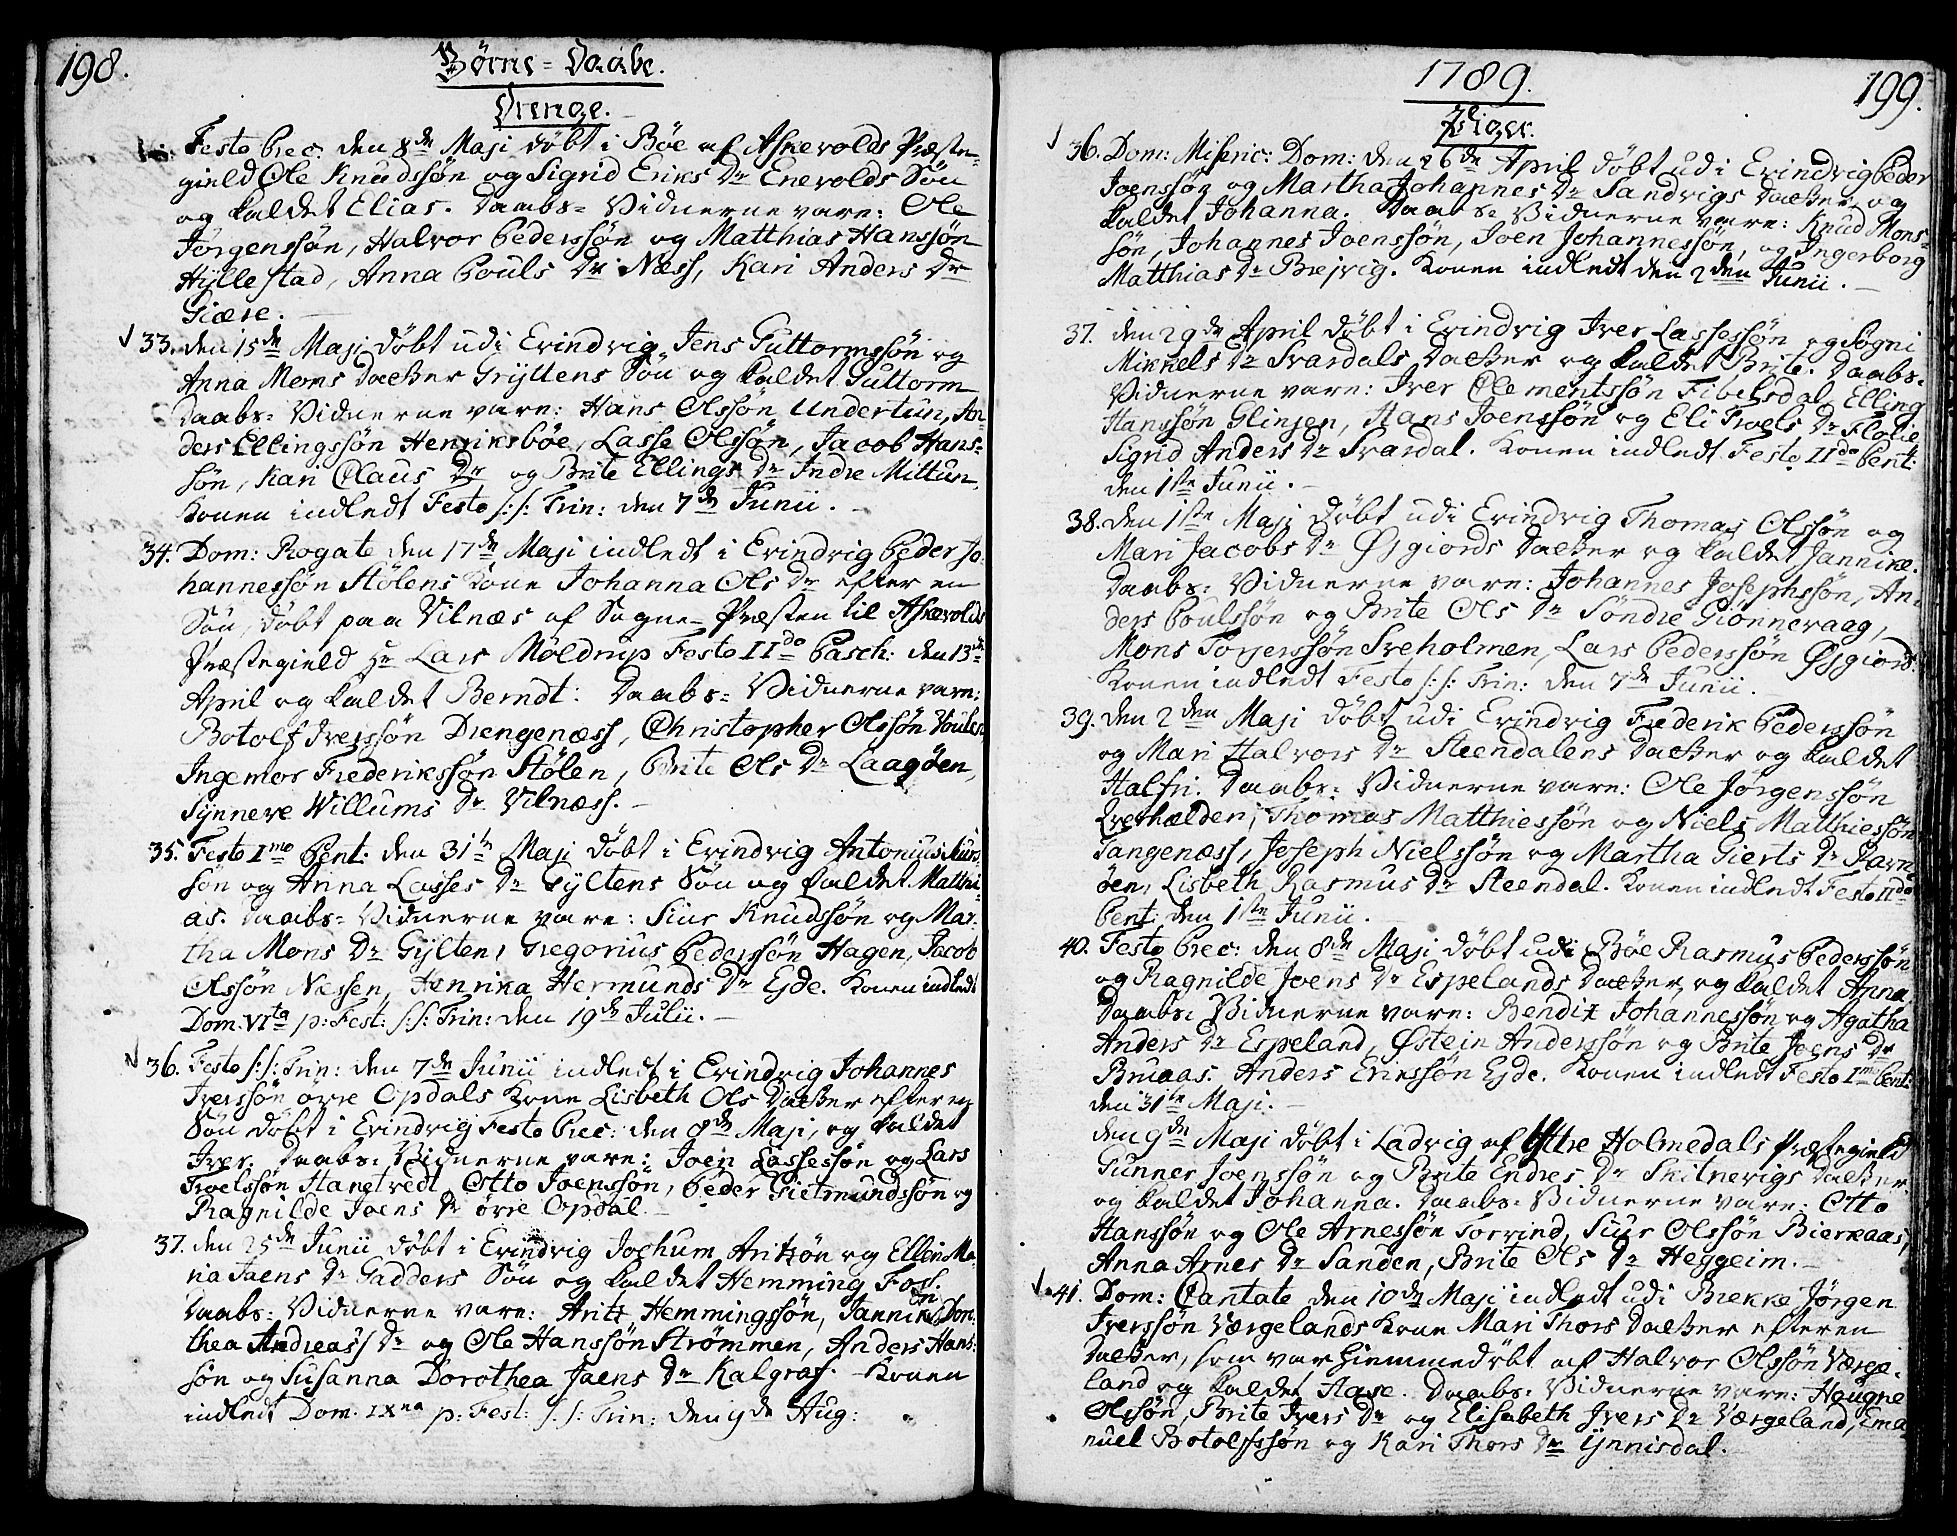 198.
Børne-Daabe.
Drenge.
Festo Prec: den 8de Maji døbt i Bøe af Askevolds Præste-
gield Ole Knudssøn og Sigrid Eriks Dr Enevolds Søn
og kaldet Elias. Daabs-Vidnerne vare: Ole
Jørgenssøn, Halvor Pederssøn og Matthias Hanssøn
Hyllestad, Anna Pouls Dr Næss, Kari Anders Dr
Giære.
33. den 15de Maji døbt udi Evindvig Jens Guttormssøn og
Anna Mons Datter Gryttens Søn og kaldet Guttorm
Daabs-Vidnerne vare: Hans Olssøn Undertun, An-
ders Ellingssøn Henriksbøe, Lasse Olssøn, Jacob Hans-
søn, Kari Olaus Dr og Brite Ellings Dr Indre Mittun.
Konen indledt Festo S:S: Trin: den 7de Junii.
34. Dom: Rogate den 17de Maji indledt i Evindvig Peder Jo-
hannessøn Stølens Kone Johanna Ols Dr efter en
Søn, døbt paa Vilnæs af Sogne-Præsten til Askevolds
Præstegield Hr Lars Møldrup Festo IIdo Pasch: den 13de
April og kaldet Berndt: Daabs-Vidnerne vare:
Botolf Iverssøn Drengenæss, Christopher Olssøn
Ingemor Frederikssøn Stølen, Brite Ols Dr Laagøen,
Synneve Willums Dr Vilnæss.
35. Festo Imo Pent: den 31te Maji døbt i Evindvig Antonius Siurs-
søn og Anna Lasses Dr Gyltens Søn og kaldet Matthi-
as. Daabs-Vidnerne vare: Siur Knudssøn og Mar-
tha Mons Dr Gylten, Gregorius Pederssøn Hagen, Jacob
Olssøn Nessen, Henrika Hermunds Dr Ejde. Konen indledt
Dom: VIta p: Fest: S:S: Trin: den 19de Julii.
36. Festo S:S: Trin: den 7de Junii indledt i Evindvig Johannes
Iverssøn øvre Opdals Kone Lisbeth Ols Datter efter en
Søn døbt i Evindvig Festo Prec: den 8de Maji, og kaldet
Iver. Daabs-Vidnerne vare: Joen Lassessøn og Lars
Troelssøn Hantvedt, Otto Joenssøn, Peder Gietmundssøn og
Ragnilde Joens Dr øvre Opdal.
37. den 25de Junii døbt i Evindvig Jochum Fritzøn og Ellen Ma-
ria Jaens Dr Gadders Søn og kaldet Hemming Foss.
Daabs-Vidnerne vare: Fritz Hemmingssøn, Jannike Doro-
thea Andreas's Dr og Ole Hanssøn Strømmen, Anders Hans-
søn og Susanna Dorothea Jaens Dr Kalgraf. Konen
indledt Dom. IXna p: Fest: S:S: Trin: den 9de Aug:
1789.
199.
Piger.
36. Dom: Miseric: Dom: den 26de April døbt udi Evindvig Peder
Joenssøn og Martha Johannes Dr Sandvigs Datter og
kaldet Johanna. Daabs-Vidnerne vare: Knud Mons-
søn, Johannes Joenssøn, Joen Johannessøn, og Ingerborg
Matthias Dr Brejvig. Konen indledt den 2den Junii.
37. den 29de April døbt i Evindvig Iver Lassessøn og Sogni
Mikkels Dr Svardals Datter og kaldet Brite. Daabs-
Vidnerne vare: Iver Clementssøn Fibelsdal, Elling
Hanssøn Glinjen, Hans Joenssøn og Eli Troels Dr Flolie
Sigrid Anders Dr Svardal. Konen indledt Festo IIdo Pent:
den 1ste Junii.
38. den 1ste Maji døbt udi Evindvig Thomas Olssøn og
Mari Jacobs Dr Øjgiords Datter og kaldet Jannike.
Daabs-Vidnerne vare: Johannes Josephssøn, An-
ders Poulssøn og Brite Ols Dr Søndre Giønneraag,
Mons Torjerssøn Treholmen, Lars Pederssøn Øjgiord.
Konen indledt Festo S:S: Trin: den 7de Junii.
39. den 2den Maji døbt udi Evindvig Frederik Pederssøn
og Mari Halvors Dr Steendalens Datter og kaldet
Halfri. Daabs-Vidnerne vare: Ole Jørgenssøn
Qvehælden, Thomas Matthiessøn og Niels Matthiessøn
Tangenæss, Joseph Nielssøn og Martha Gierts Dr
øen, Lisbeth Rasmus Dr Steendal. Konen indledt Festo IIdo
Pent: den 1ste Junii.
40. Festo Prec: den 8de Maji døbt udi Bøe Rasmus Pederssøn
og Ragnilde Joens Dr Espelands Datter og kaldet Anna
Daabs-Vidnerne vare: Bendix Johannessøn og Agatha
Anders Dr Espeland, Østein Anderssøn og Brite Joens Dr
Bruaas. Anders Erikssøn Ejde. Konen indledt Festo Imo Pent:
den 31te Maji.
den 9de Maji døbt i Ladvig af Yttre Holmedals Præstegield
Gunner Joenssøn og Brite Endres Dr Skilnevigs Datter
og kaldet Johanna. Daabs-Vidnerne vare: Otto
Hanssøn og Ole Arnessøn Torvind, Siur Olssøn Bierkaas,
Anna Arnes Dr Sanden, Brite Ols Dr Heggeim.
41. Dom: Cantate den 10de Maji indledt udi Brekke Jørgen
Iverssøn Værgelands Kone Mari Thors Datter efter en
Datter, som var hiemmedøbt af Halvor Olssøn Værge-
land og kaldet Aase. Daabs-Vidnerne vare: Haugne
Olssøn, Brite Ivers Dr og Elisabeth Ivers Dr Værgeland, Ema
nuel Botolfssøn og Kari Thors Dr Ynnisdal.